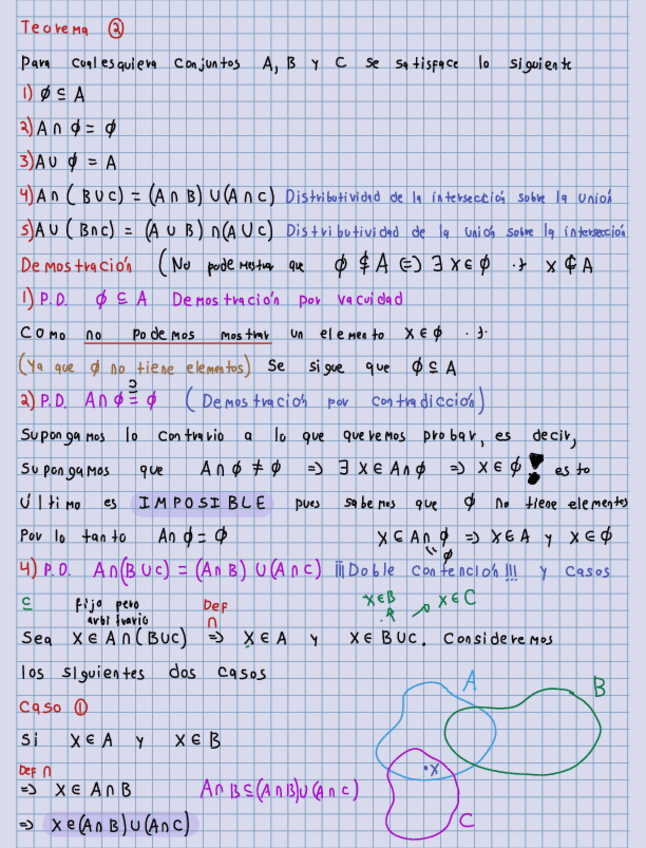 Teorema ②
Para cualesquiera conjuntos A, B y C se satisface lo siguiente
1) ∅ ⊆ A
2) A ∩ ∅ = ∅
3) A ∪ ∅ = A
4) A ∩ ( B ∪ C ) = (A ∩ B) ∪ (A ∩ C) Distributividad de la intersección sobre la unión
5) A ∪ ( B ∩ C ) = (A ∪ B) ∩ (A ∪ C) Distributividad de la unión sobre la intersección
Demostración (No puede mostrar que ∅ ⊈ A ⇔ ∃ x ∈ ∅ .t. x ∉ A
1) P.D. ∅ ⊆ A Demostración por vacuidad
Como no podemos mostrar un elemento x ∈ ∅ .t.
(Ya que ∅ no tiene elementos) Se sigue que ∅ ⊆ A
?
2) P.D. A ∩ ∅ = ∅ (Demostración por contradicción)
Supongamos lo contrario a lo que queremos probar, es decir,
Supongamos que A ∩ ∅ ≠ ∅ => ∃ x ∈ A ∩ ∅ => x ∈ ∅ ! esto
Ultimo es IMPOSIBLE pues sabemos que ∅ no tiene elementos
Por lo tanto A ∩ ∅ = ∅ x ∈ A ∩ ∅ => x ∈ A y x ∈ ∅
" ∅
4) P.D. A ∩ (B ∪ C) = (A ∩ B) ∪ (A ∩ C) ¡¡¡Doble contención!!! y casos
⊆ fijo pero arbitrario Def ∩ x ∈ B x ∈ C
Sea x ∈ A ∩ (B ∪ C) => x ∈ A y x ∈ B ∪ C. Consideremos
los siguientes dos casos
Caso ①
Si x ∈ A y x ∈ B
Def ∩
=> x ∈ A ∩ B A ∩ B ⊆ (A ∩ B) ∪ (A ∩ C)
=> x ∈ (A ∩ B) ∪ (A ∩ C)
A
B
•x
C